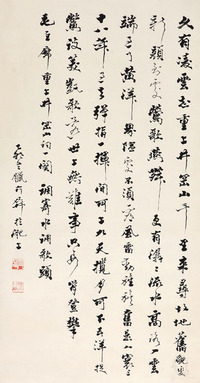 久有凌雲志重上井岡山千里來尋故地舊貌變
新顏到處鶯歌燕舞更有潺潺流水高路入雲
端過了黃洋界險處不須看風雷動旌旗奮是人寰三
十八年過去彈指一揮間可上九天攬月可下五洋捉
鱉談笑凱歌還世上無難事只要肯登攀
毛主席重上井岡山詞一闋調寄水調歌頭